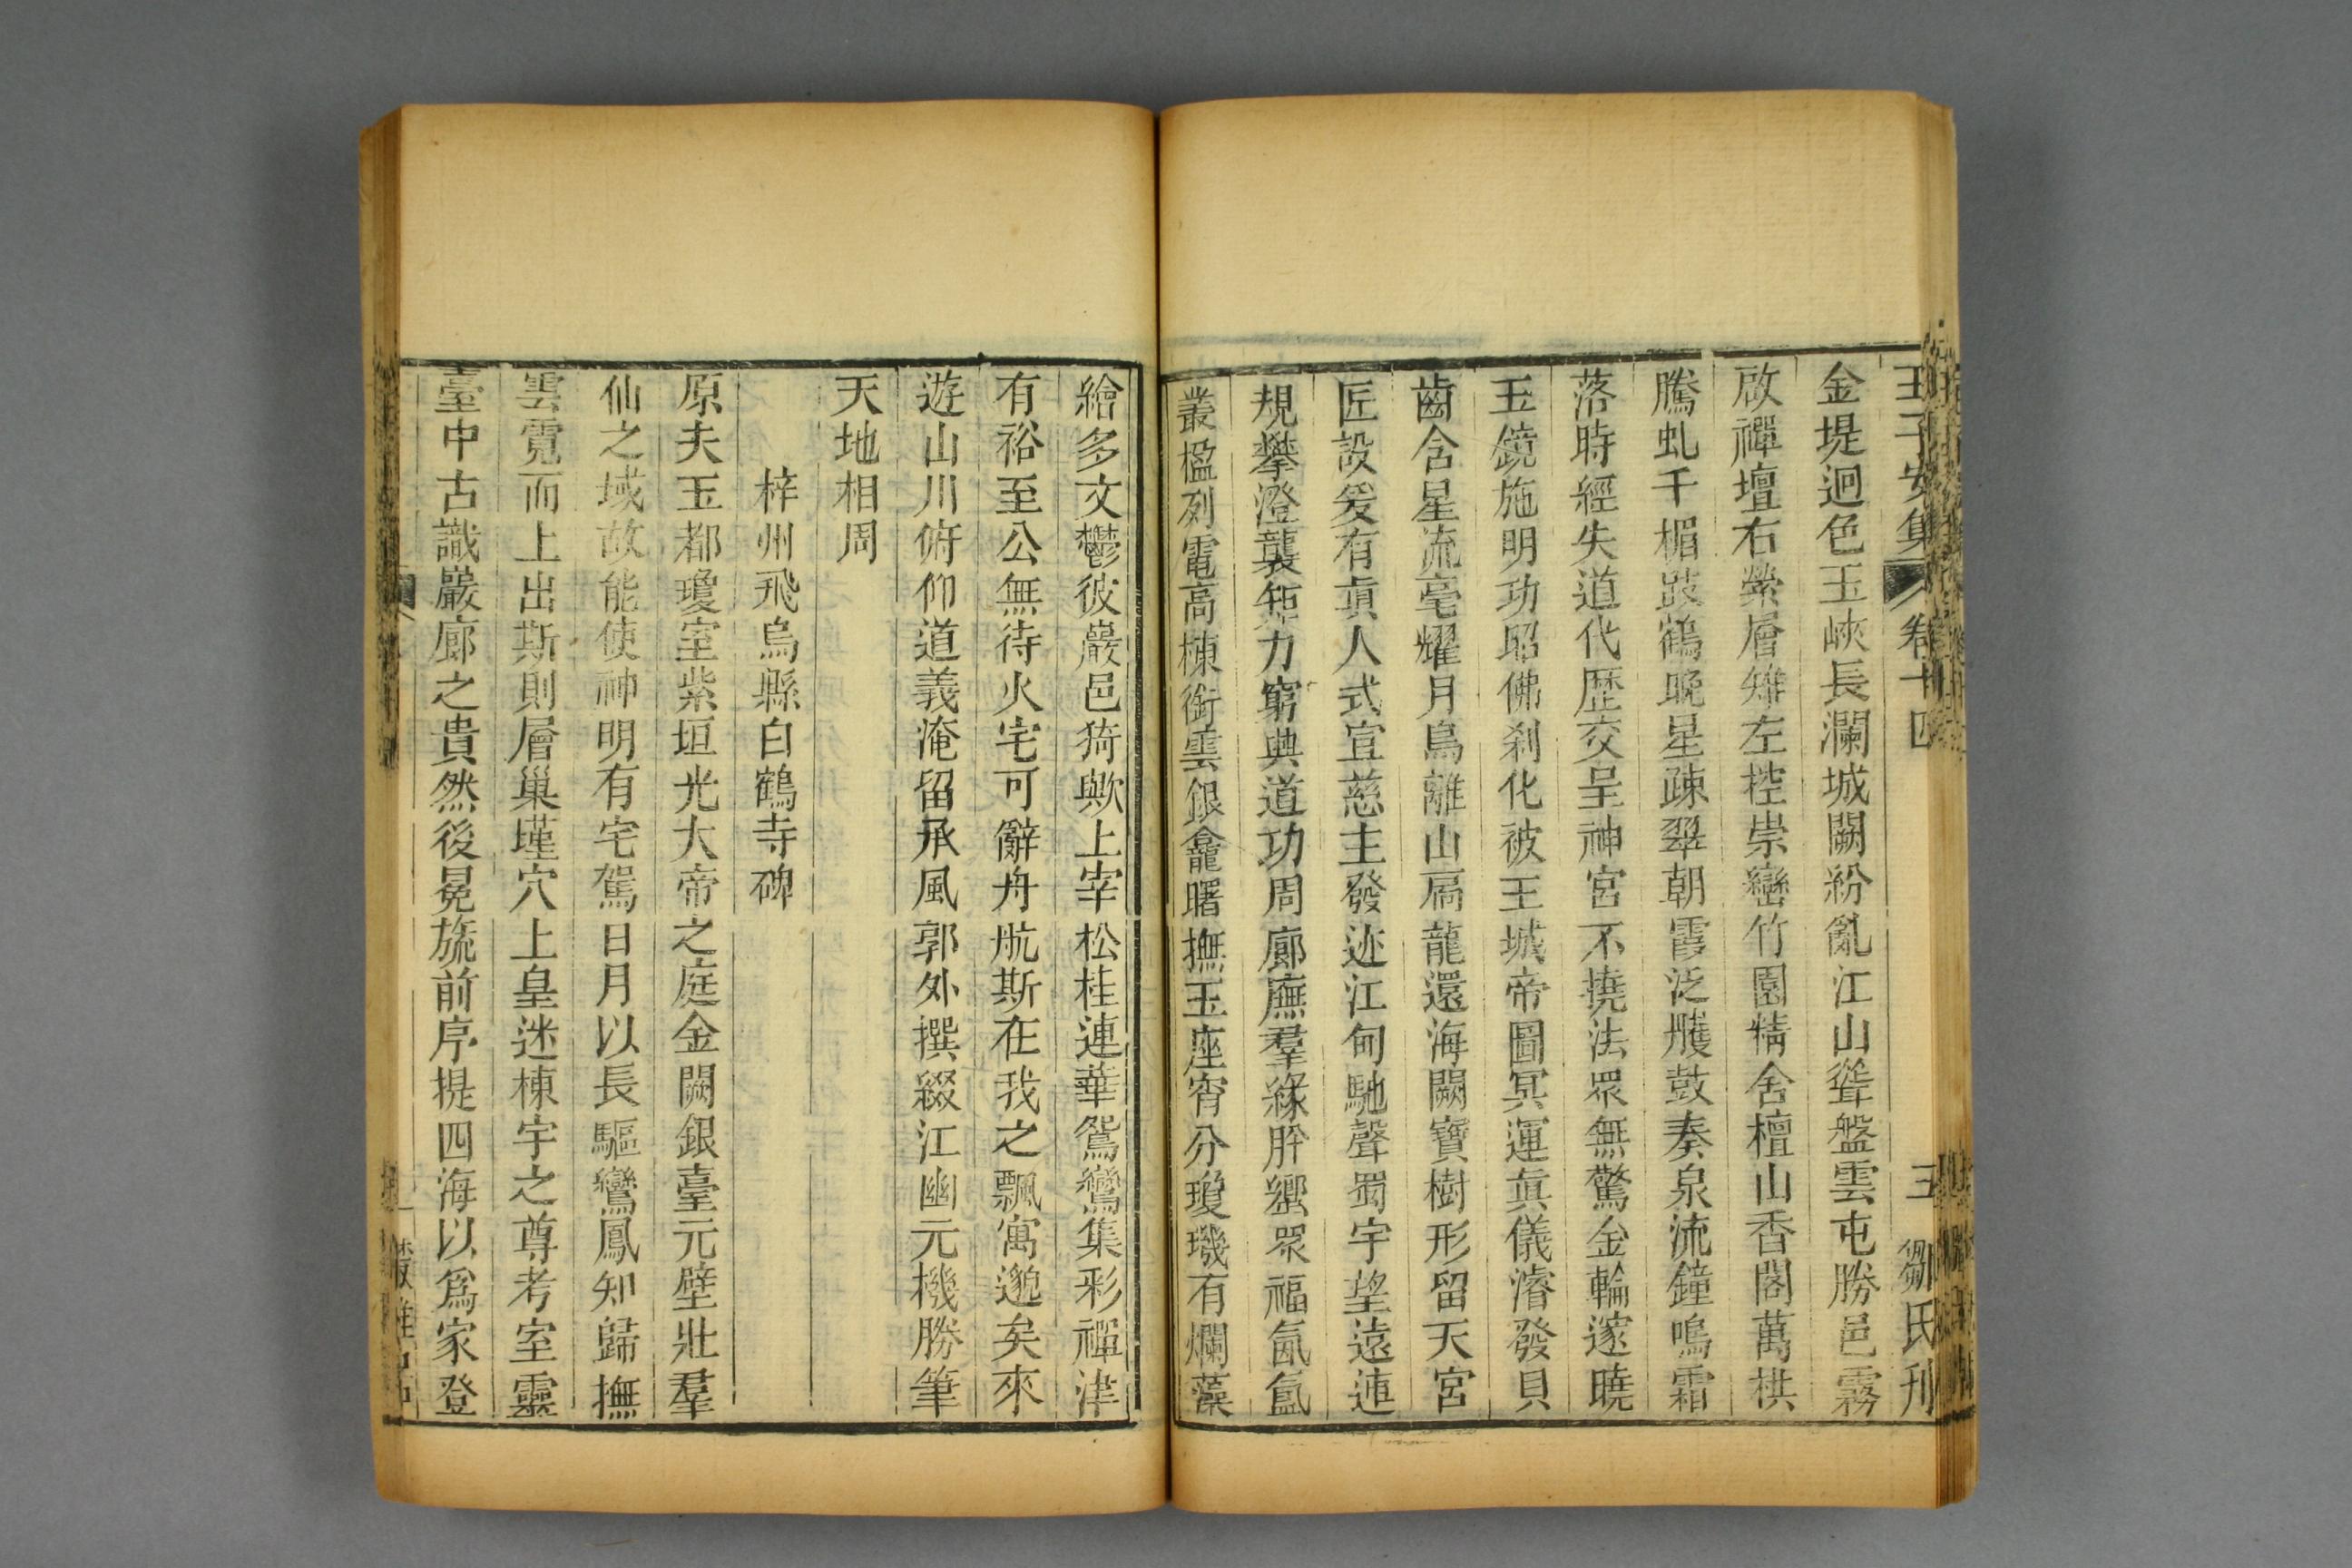 王子安集 卷十四 三 鄒氏刊
金堤迴色玉峽長瀾城闕紛亂江山聳盤雲屯勝邑霧
啟禪壇右縈層雉左控崇巒竹園精舍檀山香閣萬栱
騰虬千楣跂鶴晩星疎翠朝霞泛雘鼓奏泉流鐘鳴霜
落時經失道代歷交呈神宮不撓法眾無驚金輪邃曉
玉鏡施明功昭佛剎化被王城帝圖冥運眞儀濬發貝
齒含星流毫耀月鳥離山扃龍還海闕寶樹形留天宮
匠設爰有眞人式宣慈主發迹江甸馳聲蜀宇望遠連
規攀澄襲矩力窮典道功周廊廡羣緣肸蠁眾福氤氳
叢楹列電高棟銜雲銀龕曙撫玉座宵分瓊璣有爛藻
繪多文鬱彼巖邑猗歟上宰松桂連華鴛鸞集彩禪津
有裕至公無待火宅可辭舟航斯在我之飄寓邈矣來
遊山川俯仰道義淹留承風郭外撰綴江幽元機勝筆
天地相周
梓州飛烏縣白鶴寺碑
原夫玉都瓊室紫垣光大帝之庭金闕銀臺元壁壯羣
仙之域故能使神明有宅駕日月以長驅鸞鳳知歸撫
雲霓而上出斯則層巢墐穴上皇迷棟宇之尊考室靈
臺中古識巖廊之貴然後冕旒前序提四海以爲家登